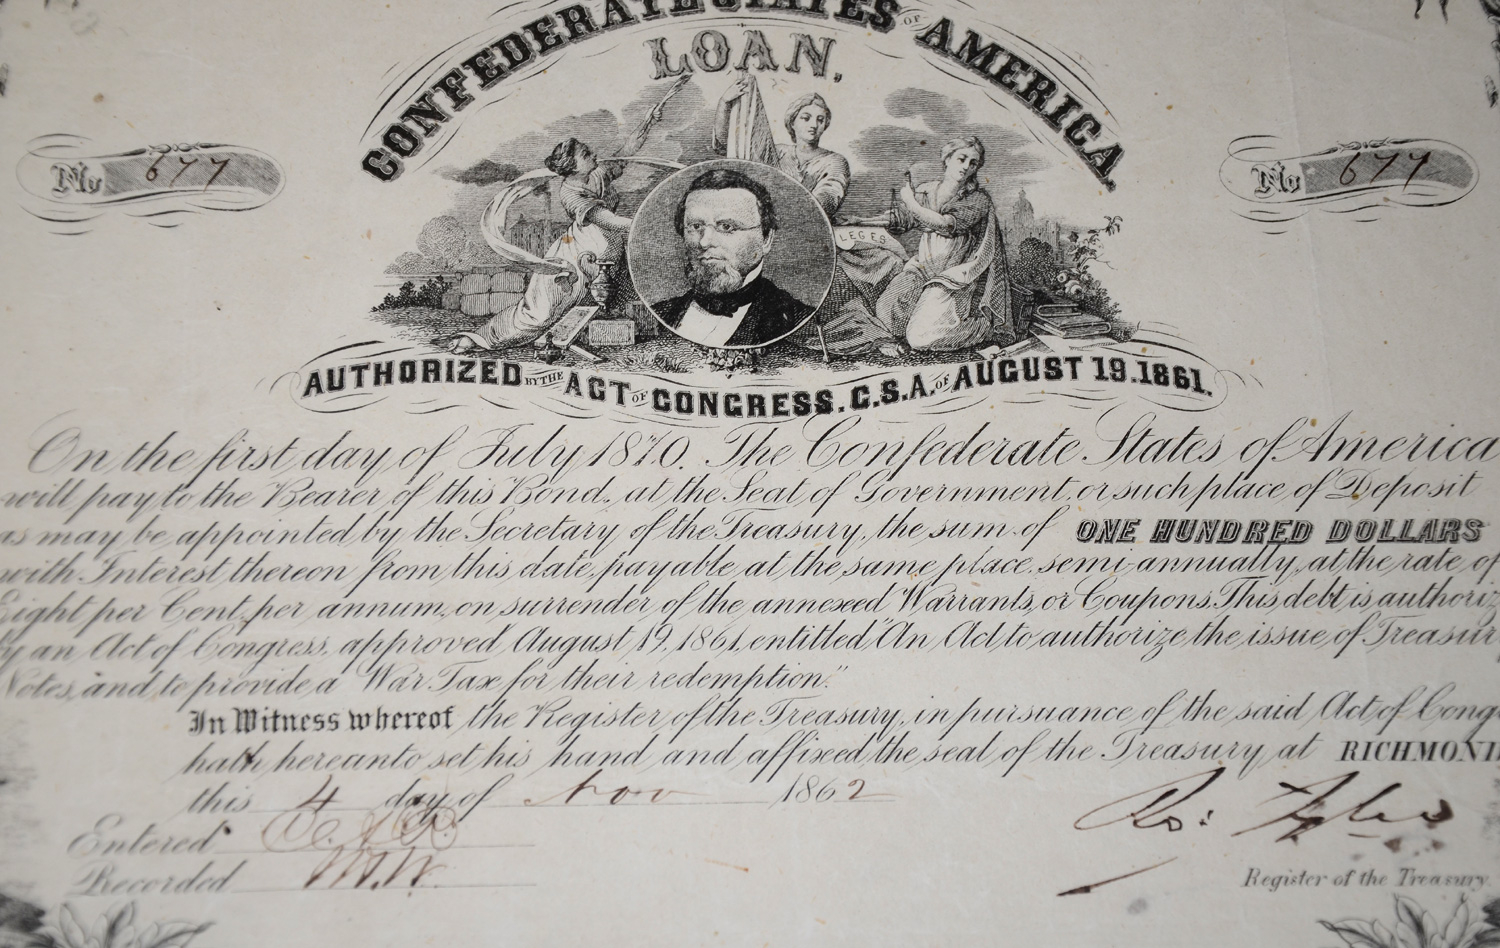 CONFEDERATE STATES OF AMERICA.
LOAN,
No 677
No 677
LEGES
AUTHORIZED BY THE ACT OF CONGRESS. C.S.A. OF AUGUST 19.1861.
On the first day of July 1870. The Confederate States of America
will pay to the Bearer of this Bond, at the Seat of Government, or such place of Deposit
as may be appointed by the Secretary of the Treasury, the sum of ONE HUNDRED DOLLARS
with Interest thereon from this date, payable at the same place semi-annually, at the rate of
Eight per Cent, per annum, on surrender of the annexed Warrants, or Coupons. This debt is authoriz
by an Act of Congress, approved August 19, 1861, entitled "An Act to authorize the issue of Treasur
Notes, and to provide a War Tax for their redemption."
In Witness whereof the Register of the Treasury, in pursuance of the said Act of Cong
hath hereunto set his hand and affixed the seal of the Treasury, at RICHMOND
this 4 day of Nov 1862
Entered
Recorded W.W.
Ro: Tyler
Register of the Treasury.